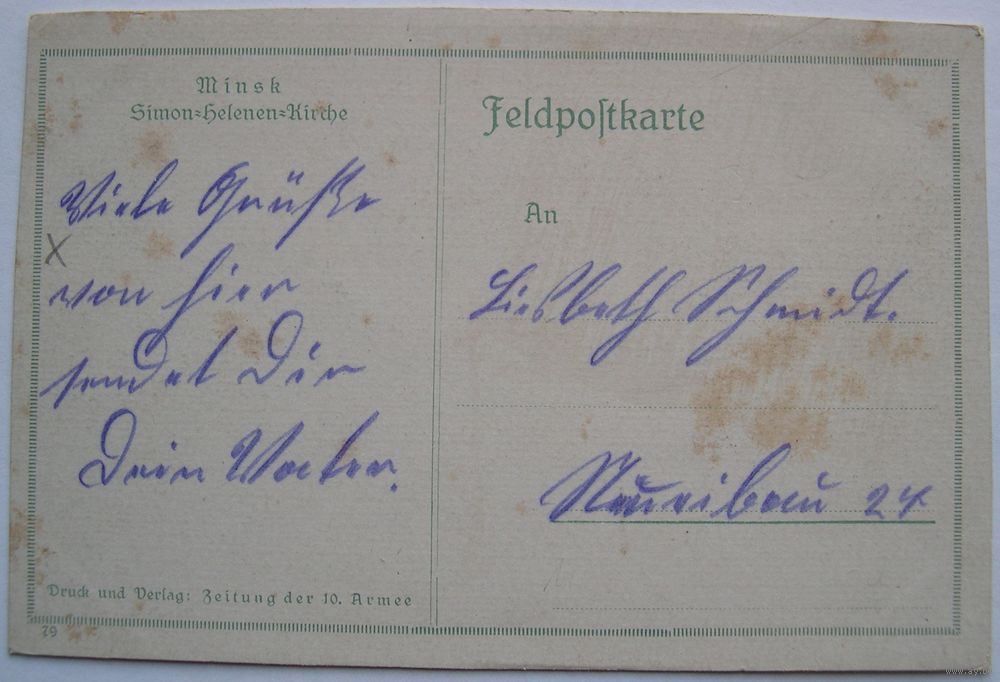 Minsk
Simon=Helenen=Kirche
Viele Grüße
von hier
sendet Dir
Dein Vater.
Druck und Verlag: Zeitung der 10. Armee
79
Feldpostkarte
An
Liesbeth Schmidt.
24